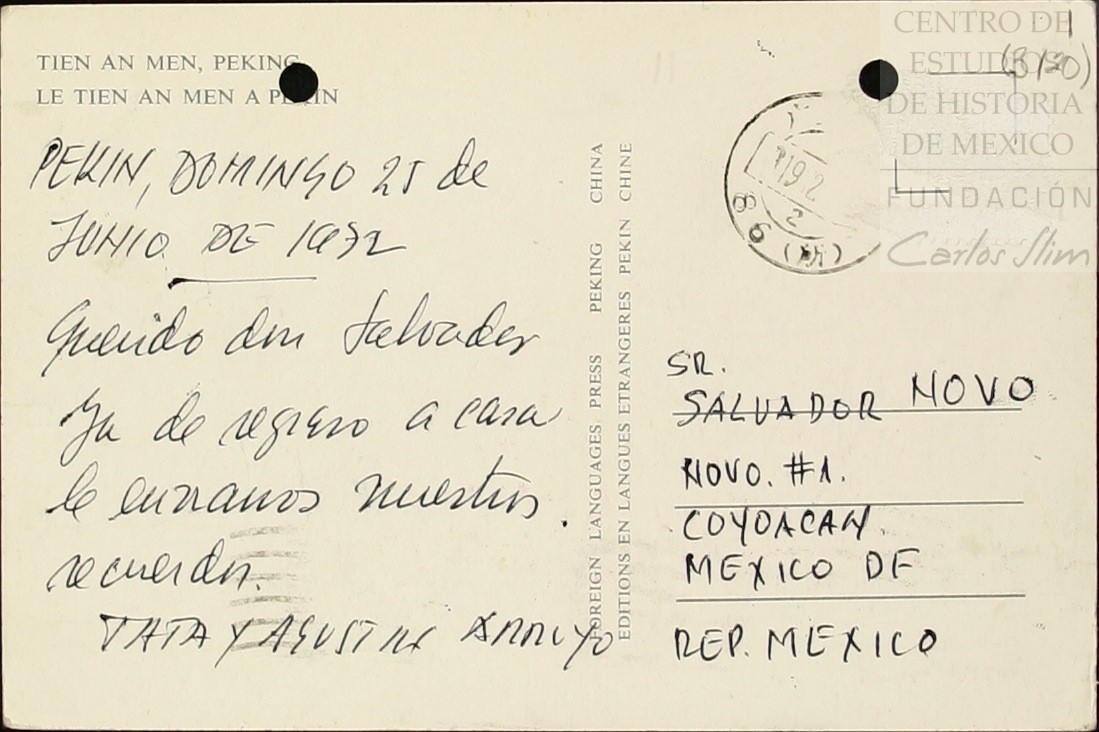 TIEN AN MEN, PEKING
LE TIEN AN MEN A PEKIN
PEKIN, DOMINGO 25 de
JUNIO DE 1972
Querido don Salvador
Ya de regreso a casa
le enviamos nuestros
recuerdos.
TATA Y AGUSTIN ARROYO
FOREIGN LANGUAGES PRESS PEKING CHINA
EDITIONS EN LANGUES ETRANGERES PEKIN CHINE
SR.
SALVADOR NOVO
NOVO. #1.
COYOACAN.
MEXICO DF
REP. MEXICO
CENTRO DE
ESTUDIOS
DE HISTORIA
DE MEXICO
FUNDACIÓN
Carlos Slim